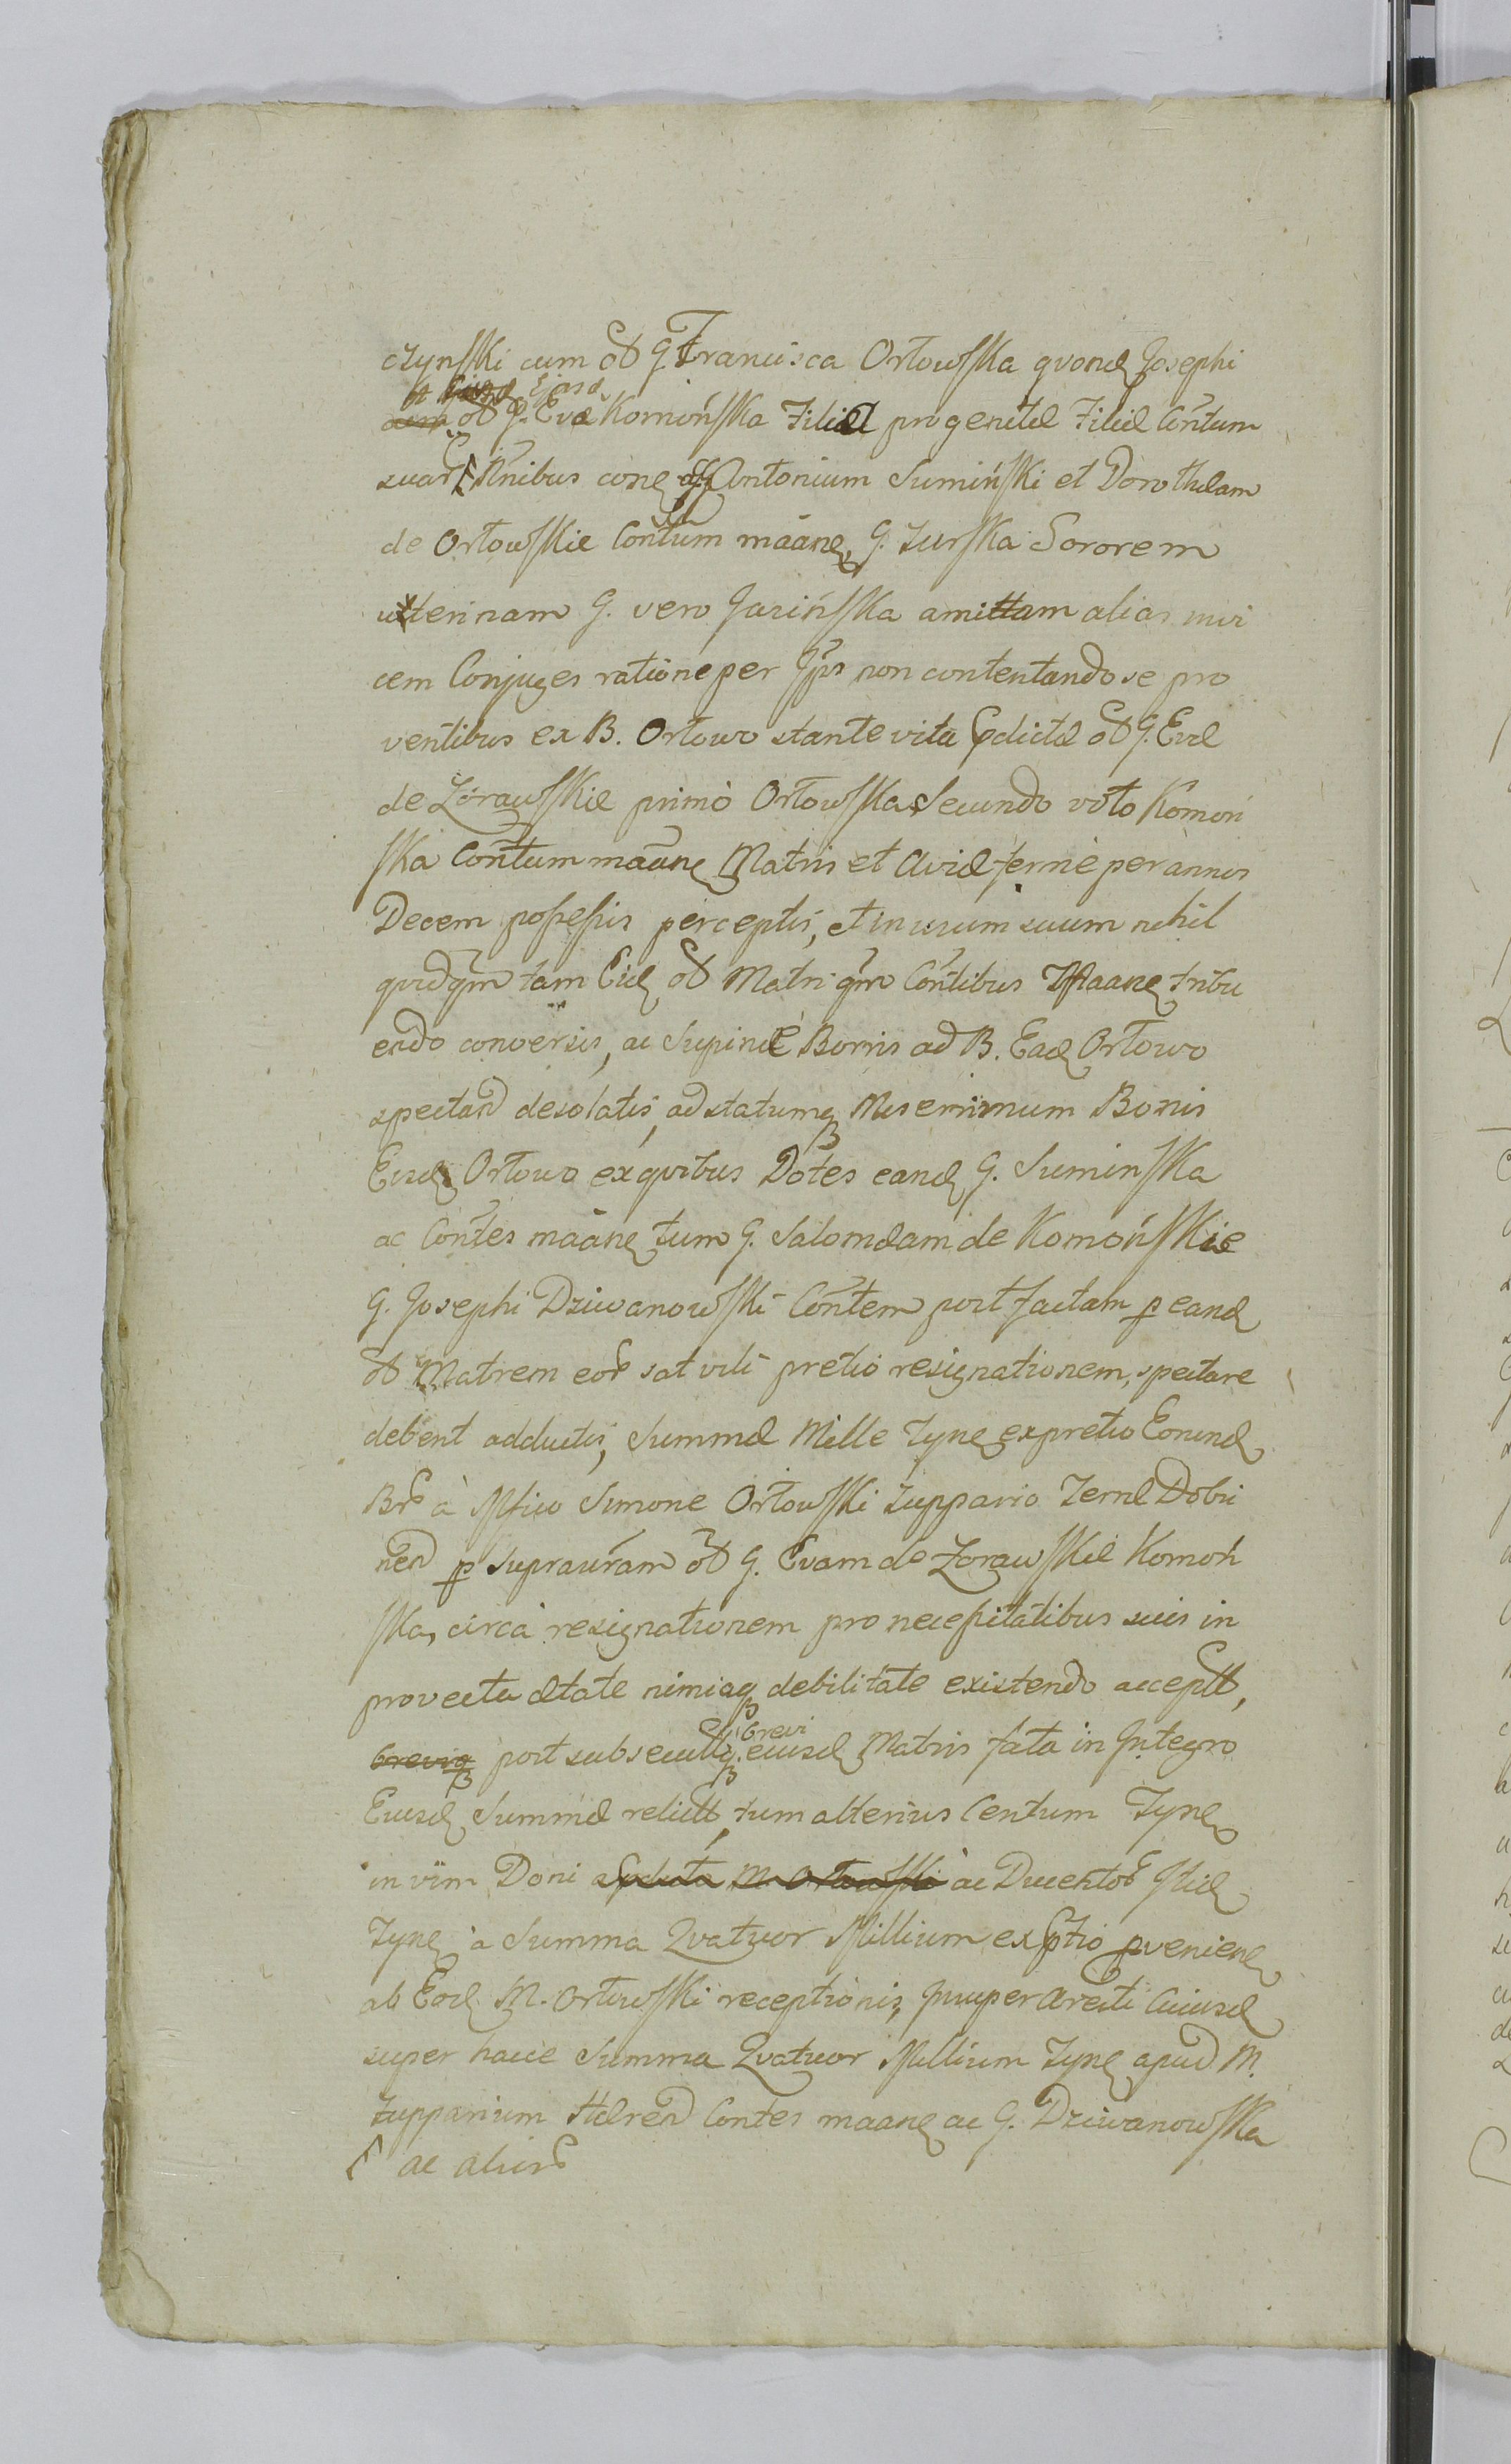 czynski cum olt G. Francisca Orłowska qvond Josephi
et Ejusd
olt G. Evæ Komońska Filiæ progenitæ Filiæ Contum
suar nibus cone Antonium Sumiński et Dorotheam
de Orłowskie Contum maane, G. Zurska Sororem
uterinam G. vero Jasińska amittam alias invi
cem Conjuges ratione per Ipsos non contentando se pro
ventibus ex B. Orłowo stante vita pdictæ olt G. Evæ
de Zórawskie primo Orłowska Secundo voto Komoń
ska Contum maane Matris et Aviæ ferme per annos
Decem possessis perceptis, et in usum suum nihil
qvidqm tam Eid olt Matri qm Contibus Maane tribu
endo conversis, ac Supinde Bonis ad B. Ead Orłowo
spectand desolatis, ad statumq Miserrimum Bonis
Eisd Orłowo ex qvibus Dotes eand G. Sumińska
ac Contes maane tum G. Salomeam de Komońskie
G. Josephi Dziwanowski Contem post factam p eand
olt Matrem eor sat vili pretio resignationem, spectare
debent adductis, Summæ Mille Tyne ex pretio Eorund
Br à Mfico Simone Orłowski Zuppario Terræ Dobri
nen p supraviram olt G. Evam de Zorawskie Komoń
ska, circa resignationem pro necessitatibus suis in
provecta ætate nimiaq debilitate existendo accept,
brevi
breviq post subsecut eiusd Matris fata in Integro
Eiusd Summæ relict, tum alterius Centum Tyne
in vim Doni a pdicto M. Orłowski ac Ducentor Itid
Tyne a Summa Qvatuor Millium ex pvenien
ab Eod M. Orłowski receptionis, Insuper Aresti Cuiusd
super hacce Summa Qvatuor Millium Tyne apud M.
Zupparium Hæren Contes maane ac G. Dziwanowska
ac alior